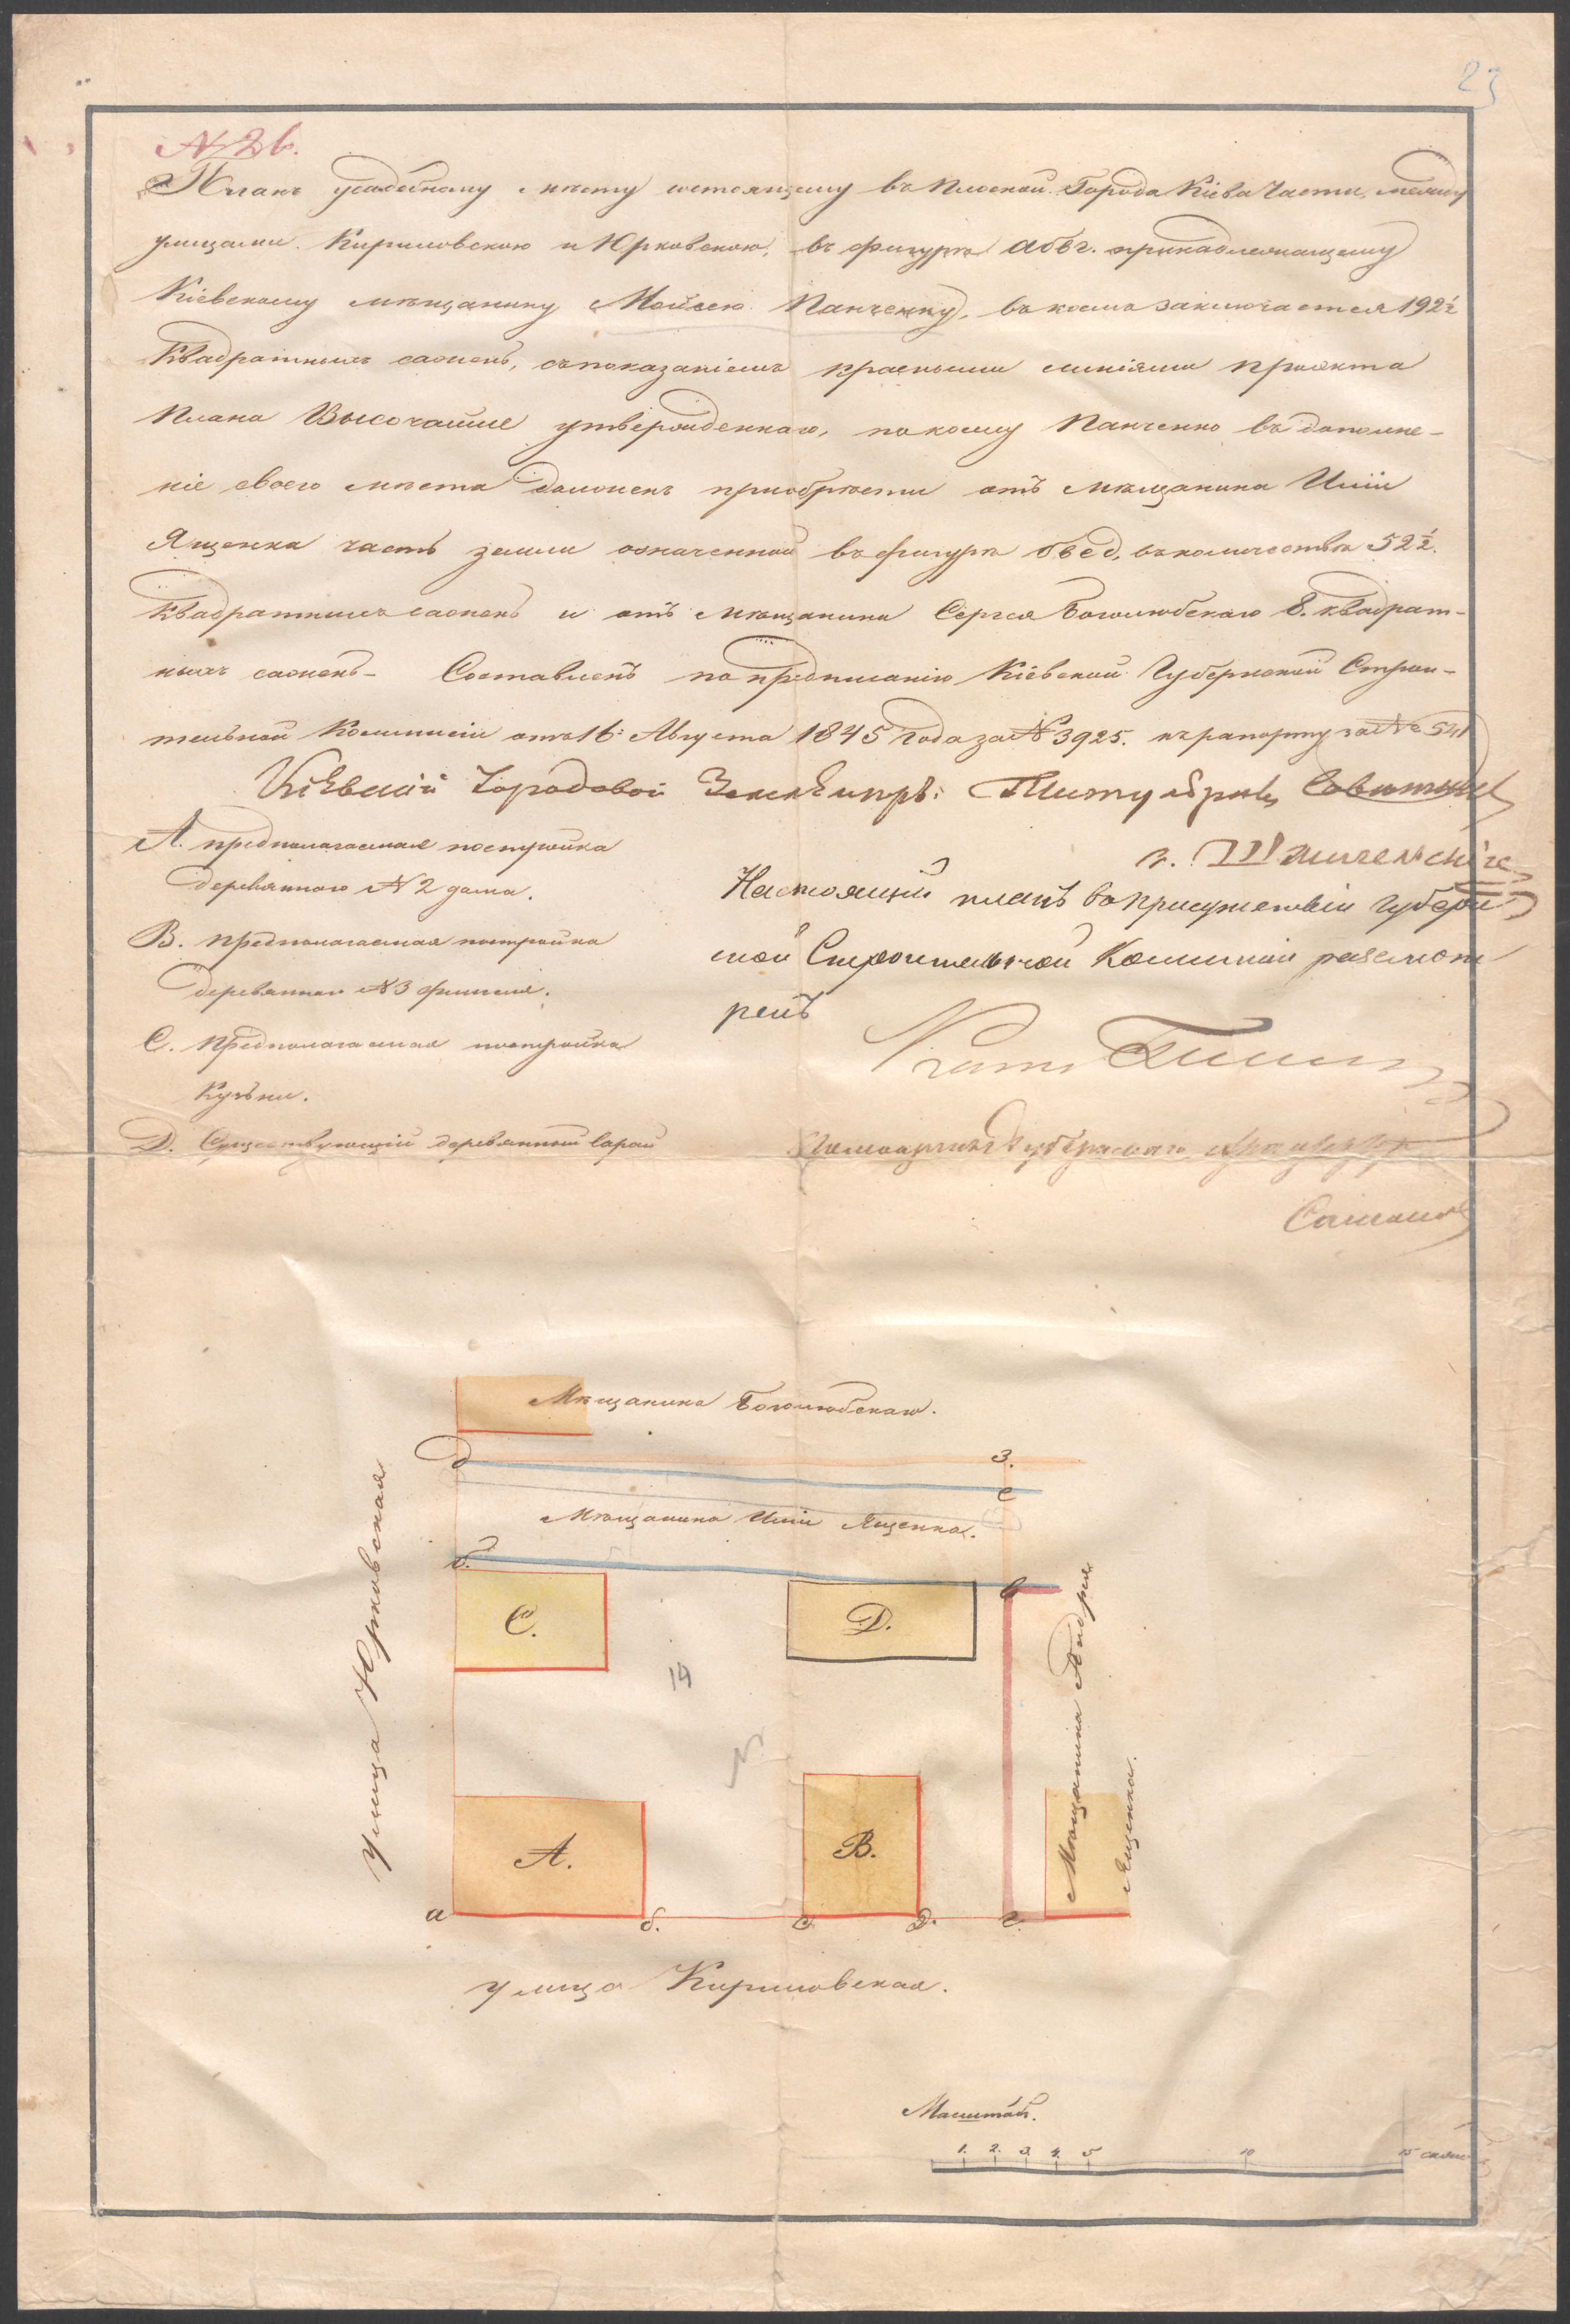 23
№ 26.
Планъ усадебному мѣсту состоящему въ Плоской Города Кіева Части, между
улицами Кириловскою и Юрковскою, въ фигурѣ абвг. принадлежащему
Кіевскому мѣщанину Мойсею Панченку, въ коемъ заключается 192½
Квадратныхъ сажень, съ показаніемъ красными линіями проэкта
Плана Высочайше утвержденнаго, по коему Панченко въ дополне-
ніе своего мѣста долженъ приобрѣсти отъ мѣщанина Иліи
Ященка часть земли означенной въ фигурѣ бвед, въ количествѣ 52½.
Квадратныхъ сажень и отъ мѣщанина Сергея Боголюбскаго 8. квадрат-
ныхъ сажень - Составленъ по предписанію Кіевской Губернской Строи-
тельной Коммисіи отъ 16: Августа 1845 года за № 3925. къ рапорту за № 541
Кіевскій Городовой Землемѣръ: Титулярный Совѣтникъ
А. предполагаемая постройка
деревянного № 2 дома.
В. предполагаемая постройка
деревянной № 3 флигеля.
С. предполагаемая постройка
Кузьни.
Д. Существующій деревянный сарай
Настоящій планъ въ присутствіи Губерн
ской Строительной Коммисіи разсмот
ренъ
Помощникъ Губернскаго Архитектора
Мѣщанина Боголюбскаго.
д
з.
е
Мѣщанина Иліи Ященка.
б.
в
С.
Д.
19
А.
В.
а
б.
с
д.
г.
Улица Юрковская
Мѣщанина Андрея
Ященка.
улица Кириловская.
Масштабъ.
1. 2. 3. 4. 5 10 15 сажень